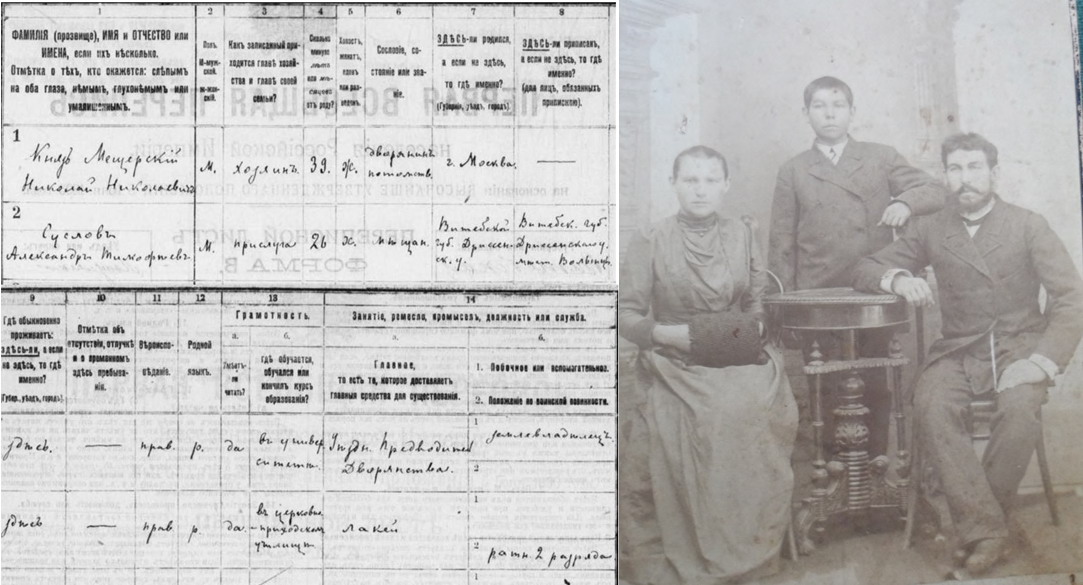 1 2 3 4 5 6 7 8
ФАМИЛІЯ (прозвище), ИМЯ и ОТЧЕСТВО или
ИМЕНА, если ихъ нѣсколько.
Отмѣтка о тѣхъ, кто окажется: слѣпымъ
на оба глаза, нѣмымъ, глухонѣмымъ или
умалишеннымъ.
Полъ.
М-муж-
ской.
Ж-жен-
скій.
Какъ записанный при-
ходится главѣ хозяй-
ства и главѣ своей
семьи?
Сколько
минуло
лѣтъ
или мѣ-
сяцевъ
отъ роду?
Холостъ,
женатъ,
вдовъ
или раз-
веденъ.
Сословіе, со-
стояніе или зва-
ніе.
ЗДѢСЬ-ли родился,
а если не здѣсь,
то гдѣ именно?
(Губернія, уѣздъ, городъ).
ЗДѢСЬ-ли приписанъ,
а если не здѣсь, то гдѣ
именно?
(для лицъ, обязанныхъ
припискою).
1
Князь Мещерскій
Николай Николаевичъ
М.
хозяинъ
39.
ж.
дворянинъ
потомств.
г. Москва.
—
2
Сусловъ
Александръ
М.
прислуга
26
ж.
мѣщан.
Витебской
губ. Дриссен-
ск. у.
Витебск. губ.
Дриссенскаго у.
9 10 11 12 13 14
Гдѣ обыкновенно
проживаетъ:
здѣсь-ли, а если
не здѣсь, то гдѣ
именно?
(Губер., уѣздъ, городъ).
Отмѣтка объ
отсутствіи, отлучкѣ
и о временномъ
здѣсь пребыва-
ніи.
Вѣроиспо-
вѣданіе.
Родной
языкъ.
Грамотность.
а.
Умѣетъ-
ли
читать?
б.
гдѣ обучается,
обучался или
кончилъ курсъ
образованія?
Занятіе, ремесло, промыселъ, должность или служба.
а.
Главное,
то есть то, которое доставляетъ
главныя средства для существованія.
б.
1. Побочное или вспомогательное.
2. Положеніе по воинской повинности.
здѣсь.
—
прав.
р.
да
въ универ
ситетѣ.
Уѣздн. Предводитель
Дворянства.
1
землевладѣлецъ.
2
здѣсь
—
прав.
р.
да.
въ церковно
-приходскомъ
училищѣ
лакей
1
2
ратн. 2 разряда
1